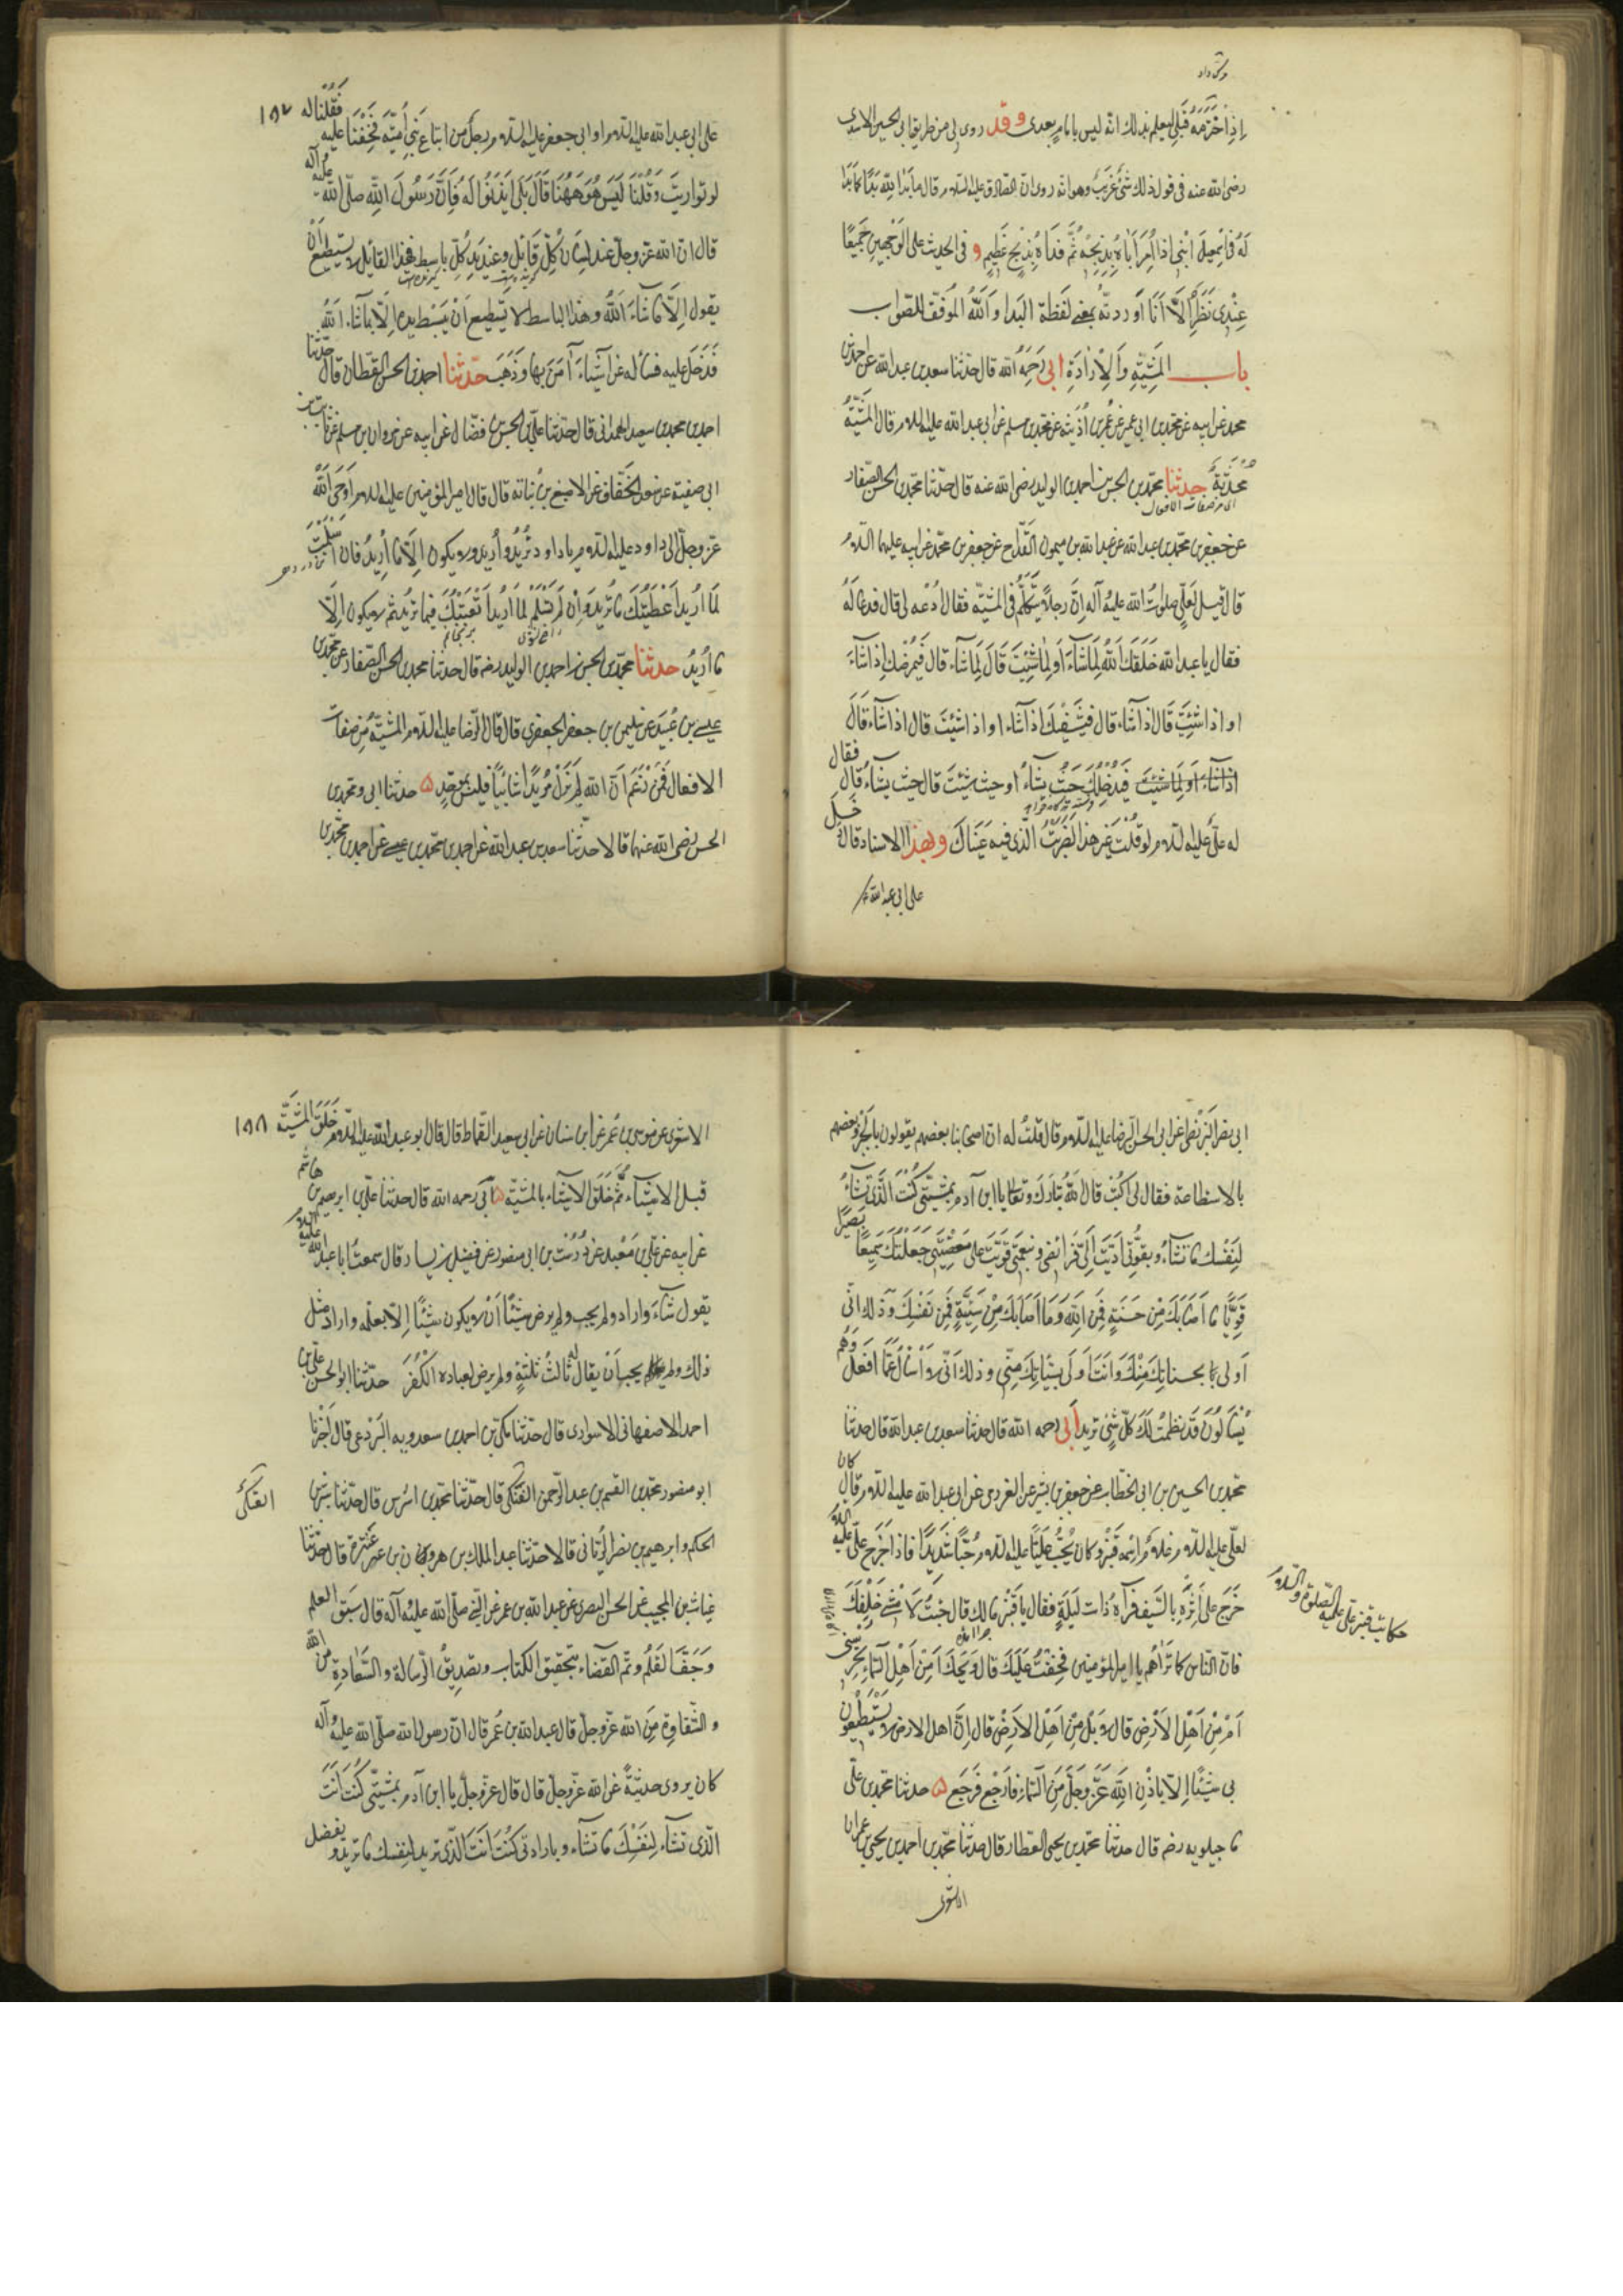 وشى داد
إِذِ اخْتَرَمَهُ قَبْلِي لِيعلم بذلك انّه ليس بامامٍ بعدى وقد روى لى من طريق ابى الحسين الاسدى
رضى الله عنه فى قول ذلك شَىْءٌ غَرِيبٌ وهو انّه روى انّ الصّادق عليه السّلام قال ما بَدَا لِلّهِ بَدَاءٌ كما بَدَا
لَهُ فى اسمعيل ابْنى اذا اُمِرَ اَبَاهُ بِذِبْحِهِ ثُمَّ فَدَاهُ بِذِبْحٍ عَظِيمٍ و فى الحديث على الوَجْهَيْنِ جَمِيعًا
عِنْدِى نَظَرٌ اِلَّا اَنَا اَوْرَدتُّهُ بمعنى لَفظة البَداء وَاَللهُ المُوَفّق للصّواب
باب المَشِيَّةِ وَالْاِرَادَةِ ابى رَحِمَهُ الله قال حدّثنا سعد بن عبد الله عن احمد بن
محمد عن ابيه عن محمّد بن ابى عمير عن عُمر بن اُذَيْنَه عن محمّد بن مسلم عن ابى عبد الله عليه السلام قال المَشِيَّةُ
مُحْدَثَةٌ حدثنا محمّد بن الحسن بن احمد بن الوليد رضى الله عنه قال حدّثنا محمّد بن الحسن الصّفار
اى من صفات الافعال
عن جعفر بن محمّد بن عبد الله عن عبد الله بن ميمون القدّاح عن جعفر بن محمّد عن ابيه عليهما السّلام
قال قيل لِعَلىٍّ صلوات الله عليه وآله اِنّ رجلاً يَتَكَلَّمُ فى المَشِيّة فقال اُدْعه لى قال فدعاه لَهُ
فقال يا عبد الله خَلَقَكَ اللهُ لِمَا شَاءَ اَو لِمَا شِئْتَ قَالَ لِمَا شَاء قال فَيُمْرِضُكَ اِذا شَاءَ
او اذا شِئْتَ قَالَ اذا شَاء قال فَيَشْفِيكَ اذا شَاء او اذا شِئْتَ قال اذا شَاء قَالَ
فقال
اذا شَاء او لِمَا شِئْتَ فَيُدْخِلُكَ حَيْثُ يشَاءُ او حيث شِئْتَ قال حيث يشاءُ قال
له علىٌّ عليه السّلام لو قُلْتَ غَيْرَ هذا لَضَرَبْتُ الّذى فيه عَيْنَاكَ وبهذا الاسناد قال دَخَلَ
على ابى عبد الله
١٨٧
على ابى عبد الله عليه السّلام او ابى جعفر عليه السّلام رجلٌ من اتباع بَنِى اُمَيَّةَ فَخِفْنَا عليه فَقُلْنَا له
لو توارَيْتَ وَقُلْنَا لَيْسَ هُوَ هٰهُنَا قَالَ بَلى ايذَنُوا لَهُ فَاِنَّ رَسُولَ اللهِ صلّى الله عليه وآله
قال انّ الله عزّ وجلّ عند لِسَانِ كُلِّ قَائلٍ وعِنْدَ يَدِ كُلِّ باسِطٍ فهذا القائل لا يستطيع اَنْ
يقول اِلَّا مَا شَاءَ اَللهُ وهذا الباسط لا يَسْتطيع اَنْ يَبْسُطَ يده اِلّا بما شاء الله
فَدَخَلَ عليه فسأله عن اشْيَاءَ آمَنَ بها وَذَهَبَ حدّثنا احمد بن الحسن القطّان قال حدّثنا
احمد بن محمد بن سعيد الهمدانى قال حدّثنا علىّ بن الحسن بن فضّال عن ابيه عن مروان بن مسلم عن ثابت بن
ابى صفيّة عن سعد الخَفّاف عن الاصبغ بن نُباته قال قال امير المؤمنين عليه السلام اَوحَى اللهُ
عزّ وجلّ الى داود عليه السّلام يا داود تُرِيدُ واُرِيدُ ولا يكون اِلَّا مَا اُرِيدُ فان اَسْلَمْتَ
لِمَا اُرِيدُ اَعْطَيْتُكَ مَا تُرِيدُ وَاِنْ لَمْ تُسْلِمْ لِمَا اُرِيدُ اَتْعَبْتُكَ فيما تُرِيدُ ثم لا يكون اِلَّا
مَا اُرِيدُ حدثنا محمّد بن الحسن بن احمد بن الوليد رضه قال حدثنا محمد بن الحسن الصّفار عن محمّد بن
عيسى بن عُبَيْد عن سليمن بن جعفر الجعفرى قال قال الرّضا عليه السّلام المشيّة من صفات
الافعال فَمَنْ زَعَمَ اَنّ الله لَمْ يَزَلْ مُرِيدًا شَائِيًا فليس بمُوَحِّدٍ ۵ حدثنا ابى ومحمّد بن
الحسن رضى الله عنهما قالا حدّثنا سعد بن عبد الله عن احمد بن محمّد بن عيسى عن احمد بن محمّد بن
ابى نصر البَزَنْطى عن ابى الحسن الرّضا عليه السّلام قال قُلْتُ له انّ اصحابنا بعضهم يقولون بالجَبْر وبعضهم
بالاستطاعة فقال لى اكتُبْ قال اللهُ تبَارَكَ وتعالى يا ابن آدم بِمَشِيَّتِى كُنْتَ الَّذِى تَشَاءُ
لِنَفْسِكَ مَا تشَاءُ وبقُوَّتِى اَدَّيْتَ اِلَىَّ فَرَائِضى وبنِعْمَتِى قَوِيْتَ على مَعْصِيَتِى جَعَلْتُكَ سَمِيعًا بَصِيرًا
قَوِيًّا مَا اَصَابَكَ مِنْ حَسَنَةٍ فَمِنَ اللهِ وَمَا اَصَابَكَ مِنْ سَيِّئَةٍ فَمِنْ نَفْسِكَ وَذٰلِكَ انّى
اَولى بحسناتِكَ مِنْكَ وَاَنْتَ اَوْلَى بِسَيِّئَاتِكَ مِنِّى وذلك اَنّى لا اُسْأَلُ عَمَّا اَفعَلُ وَهُم
يُسْأَلُونَ قَدْ نَظَمْتُ لَكَ كُلّ شَىْءٍ تريد ابى رحمه الله قال حدثنا سعد بن عبد الله قال حدثنا
محمّد بن الحسين بن ابى الخطّاب عن جعفر بن بشير عن العزرمى عن ابى عبد الله عليه السّلام قال كان
لعلىّ عليه السّلام غلامٌ اسمه قَنْبَرٌ وكان يُحِبُّ عَلِيًّا عليه السّلام حُبًّا شَدِيدًا فاذا خَرَجَ علىّ عليه السلام
خَرَجَ على اَثَرِهِ بالسّيف فَرَآهُ ذات ليلةٍ فقال يا قَنْبَرُ مالك قال جِئْتُ لِاَمْشِىَ خَلْفَكَ
حكايت قنبر على عليه الصّلوة والسلام
فانّ النّاس كما تَرَاهُم يا امير المؤمنين فخِفْتُ عَلَيْكَ قال وَيْحَكَ اَمِنْ اَهْلِ السّمَاءِ تَحْرُسُنِى
اَمْ مِنْ اَهْلِ الاَرْضِ قال لا بَلْ مِنْ اَهْلِ الاَرْضِ قال اِنَّ اهل الارض لا يَسْتَطِيعُون
بى شَيْئًا اِلّا بِاذْنِ اللهِ عَزَّ وَجَلَّ مِنَ السّمَاءِ فارْجِع فَرَجَعَ ۵ حدثنا محمّد بن علىّ
ماجيلويه رضه قال حدثنا محمّد بن يحيى العطّار قال حدّثنا محمّد بن احمد بن يحيى بن عمران
الاشعرى
١٨٨
الاشعرى عن موسى بن عُمر عن ابن سنان عن ابى سعيد القمّاط قال قال ابو عبد الله عليه السّلام خَلَقَ المَشِيَّة
قبل الاشياء ثُمَّ خَلَقَ الاشياء بالمشيّة ۵ ابى رحمه الله قال حدثنا علىّ بن ابرهيم بن هاشم
عن ابيه عن علىّ بن مَعْبَد عن دُرُسْت بن ابى منصور عن فضيل بن يسار قال سمعتُ ابا عبد الله عليه السلام
يقول شَاءَ واراد ولم يحب ولم يرض شَيْئًا اَنْ لا يكون شَيْئًا اِلّا بعلمه واراد مثل
ذلك ولم يحب اَنْ يقال له ثالثُ ثلثةٍ ولم يرض لعباده الكُفْرَ حدّثنا ابو الحسن علىّ بن
احمد الاصفهانى الاسوارى قال حدّثنا مكّى بن احمد بن سعدويه البَرْدعى قال اخْبَرنا
ابو منصور محمّد بن القسم بن عبد الرّحمن العَتَكى قال حدّثنا محمّد بن اشرس قال حدّثنا بشر بن
العتكىّ
الحكم وابرهيم بن نصر السّريانى قالا حدّثنا عبد الملك بن هرون بن عنتره قال حدّثنا
غياث بن المجيب عن الحسن البصرى عن عبد الله بن عمر عن النّبى صلّى الله عليه وآله قال سَبَقَ العلم
وَجَفَّ القَلَمُ وتمّ القضاء بتحقيق الكتاب وتصديق الرّسالة والسَّعَادَة مِن الله
و الشّقاوة مِنَ الله عزّ وجلّ قال عبد الله بن عُمر قال انّ رسول الله صلّى الله عليه وآله
كان يروى حديثَهُ عن الله عزّ وجلّ قال قال عزّ وجلّ يا ابن آدم بمشيّتى كُنْتَ اَنْتَ
الّذى تشَاء لِنَفْسِكَ مَا تشَاء وبارادتى كُنْتَ اَنْتَ الّذى تريد لنفسك مَا تريد وبفضل